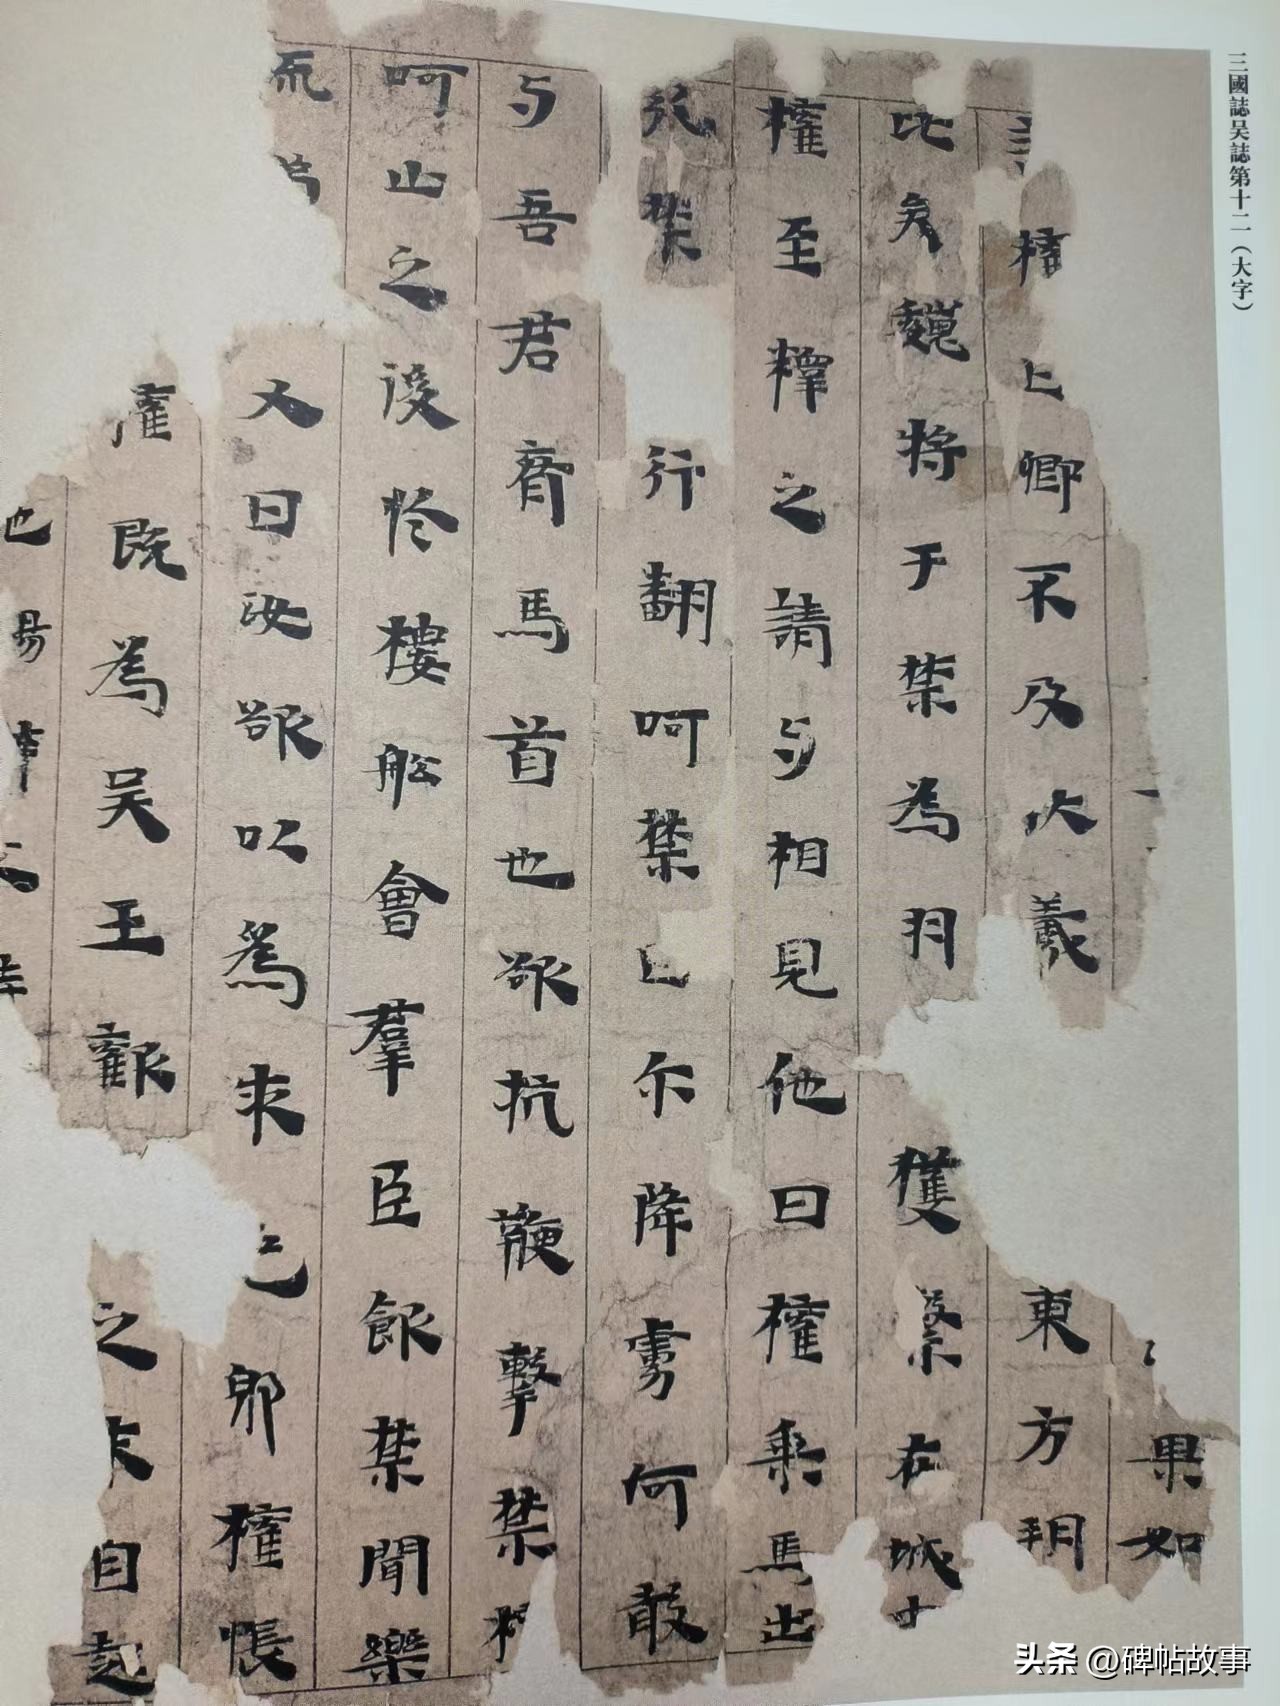 三國誌吴誌第十二（大字）
果如
權曰卿不及伏羲東方朔
比矣魏將于禁為羽獲繫在城中
權至釋之請与相見他日權乘馬出
引禁行翻呵禁曰尔降虜何敢
与吾君齊馬首也欲抗鞭擊禁權
呵止之後於樓船會羣臣飲禁聞樂
流涕又曰汝欲以為求免邪權悵
權既為吴王歡之末自起
也
头条 @碑帖故事